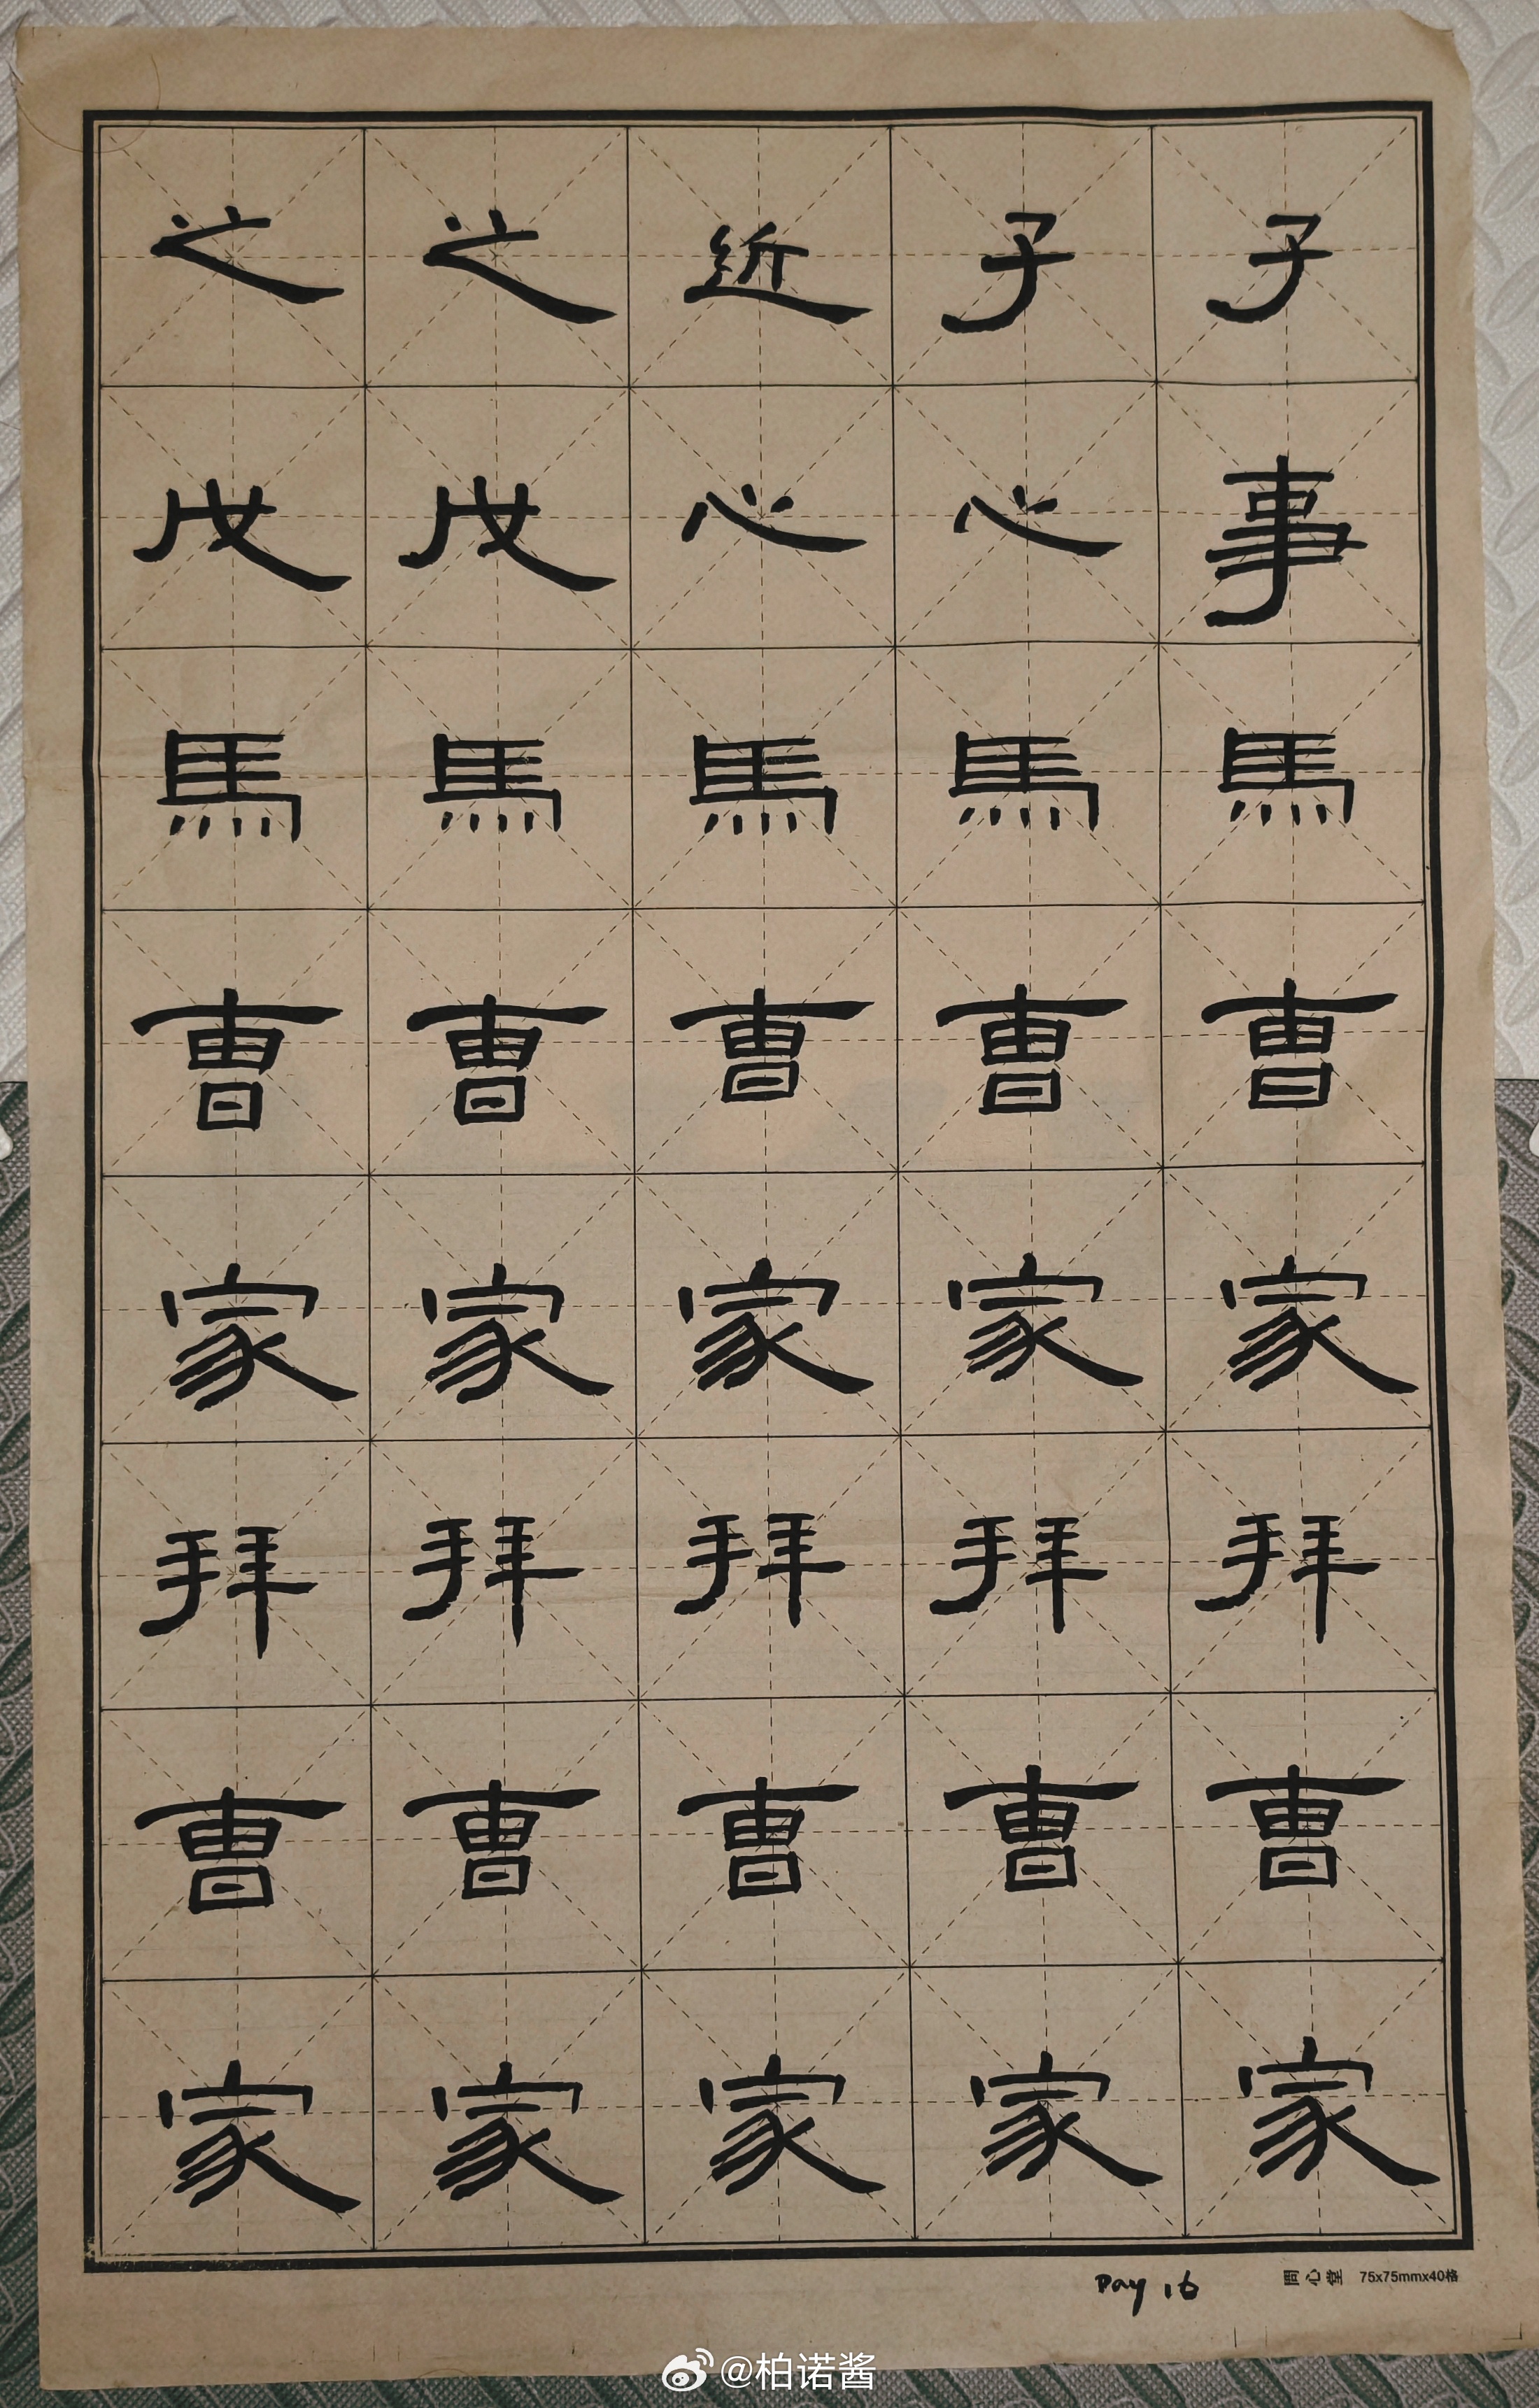 子事馬曹家拜曹家
子心馬曹家拜曹家
近心馬曹家拜曹家
之戊馬曹家拜曹家
之戊馬曹家拜曹家
Day 16
同心堂 75x75mmx40格
@柏诺酱